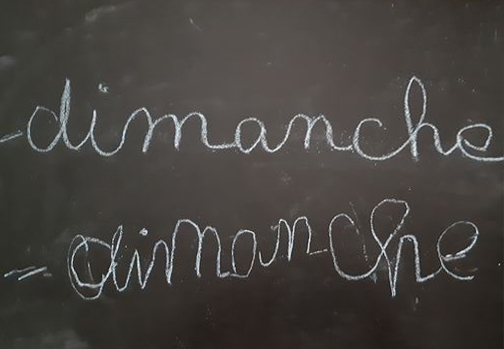 - dimanche
- dimanche